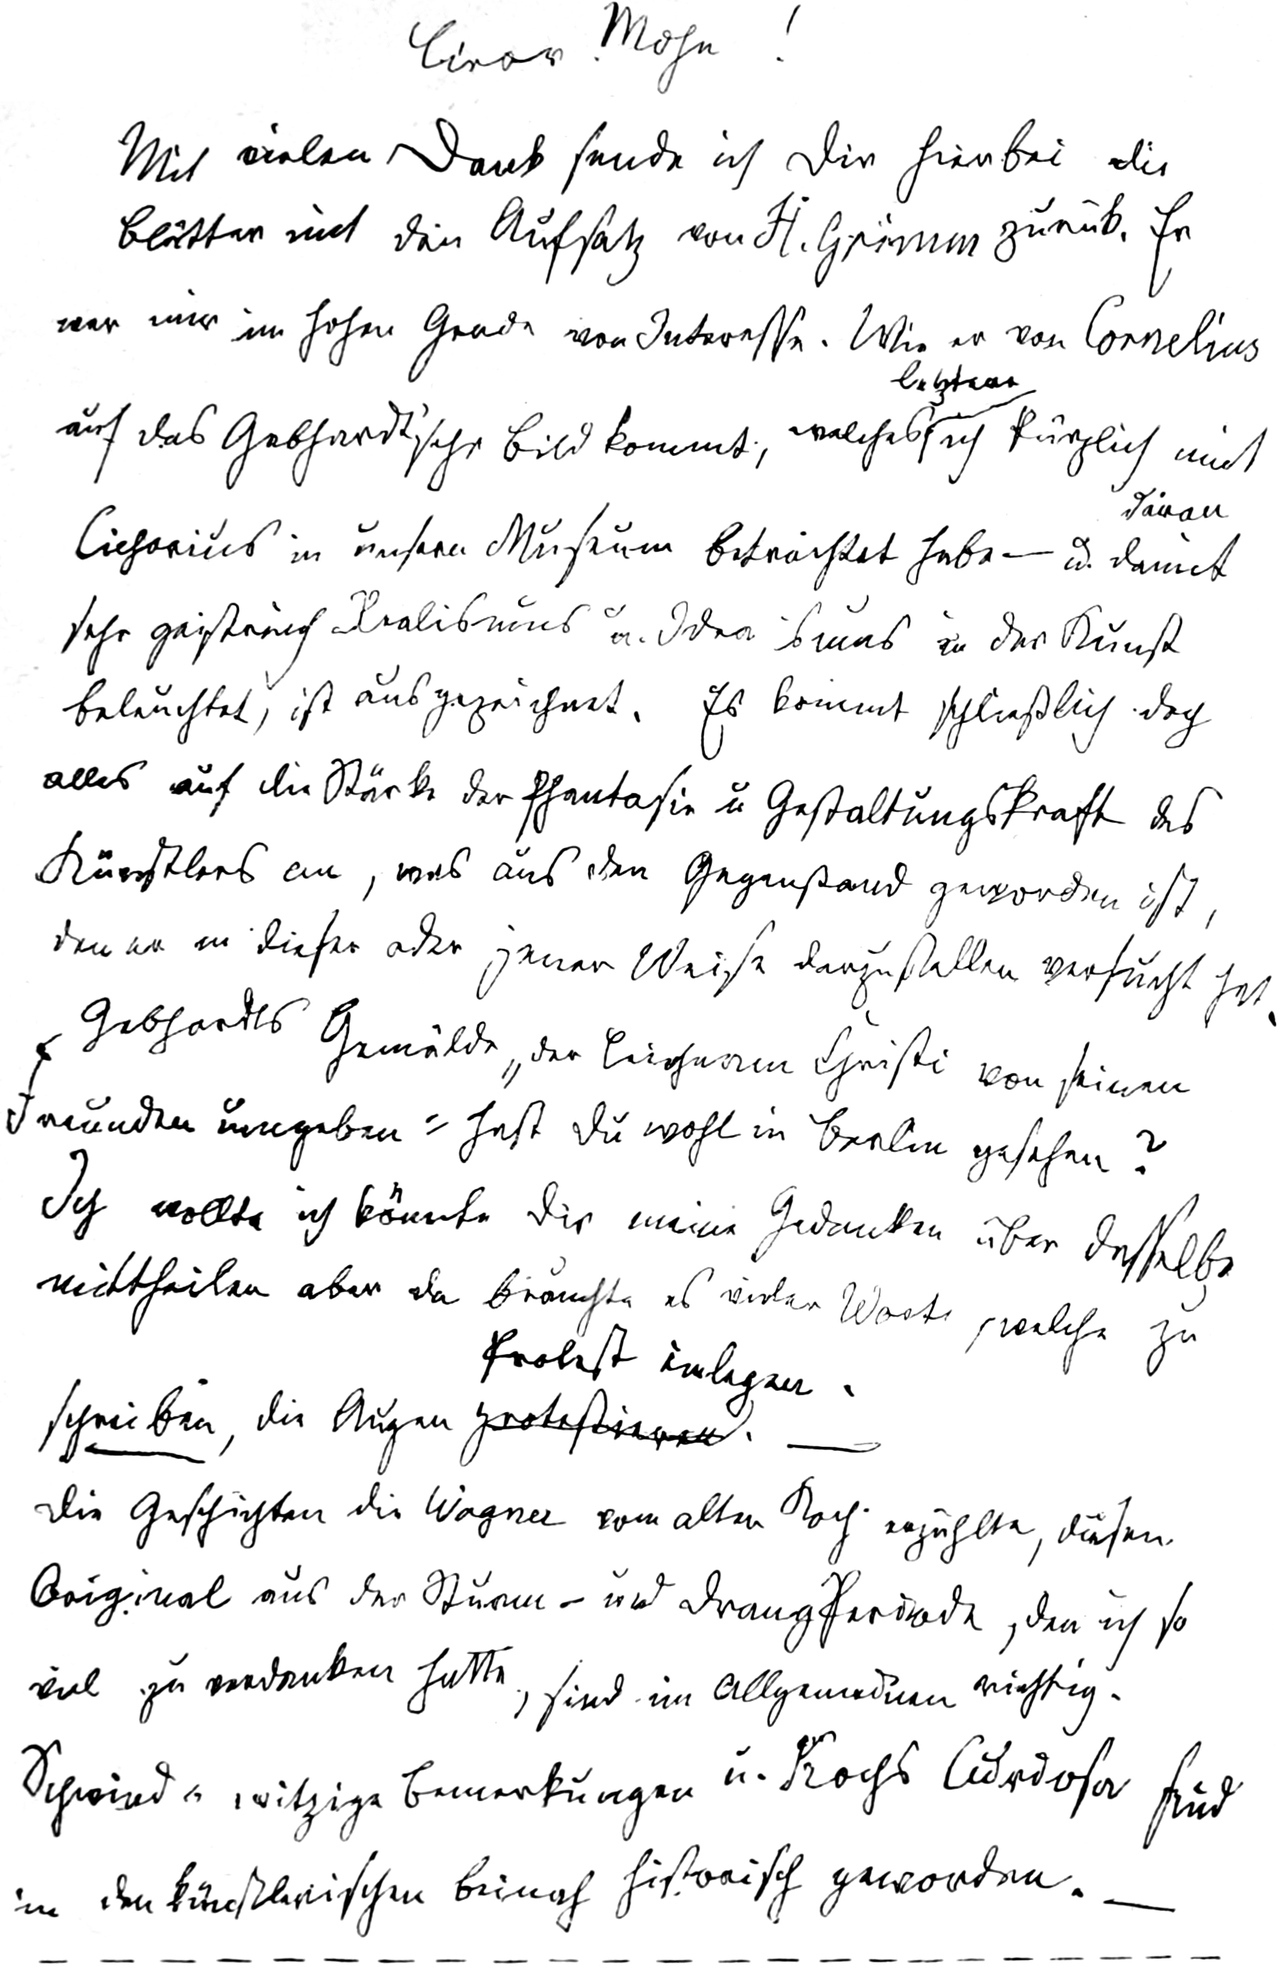 Lieber Mohn!
Mit vielen Dank sende ich Dir hierbei die
Blätter mit den Aufsatz von H. Grimm zurük. Er
war mir im hohen Grade von Interesse. Wie er von Cornelius
auf das Gebhardt'sche Bild kommt, welches letztere ich kürzlich mit
Cichorius in unsern Museum betrachtet habe — u. daran damit
sehr geistreich Realismus u. Idealismus in der Kunst
beleuchtet, ist ausgezeichnet. Es kommt schließlich doch
alles auf die Stärke der Phantasie u Gestaltungskraft des
Künstlers an, was aus den Gegenstand geworden ist,
den er in dieser oder jener Weise darzustellen versucht hat.
Gebhardts Gemälde „der Leichnam Christi von seinen
Freunden umgeben" hast Du wohl in Berlin gesehen?
Ich wollte ich könnte Dir meine Gedanken über dasselbe
mittheilen aber da brauchte es vieler Worte, welche zu
Protest einlegen.
schreiben, die Augen protestieren. —
Die Geschichten die Wagner vom alten Koch erzählte, diesen
Original aus der Sturm- und Drang Periode, den ich so
viel zu verdanken hatte, sind im Allgemeinen richtig.
Schwind's witzige Bemerkungen u. Kochs sind
in den künstlerischen beinah historisch geworden. —